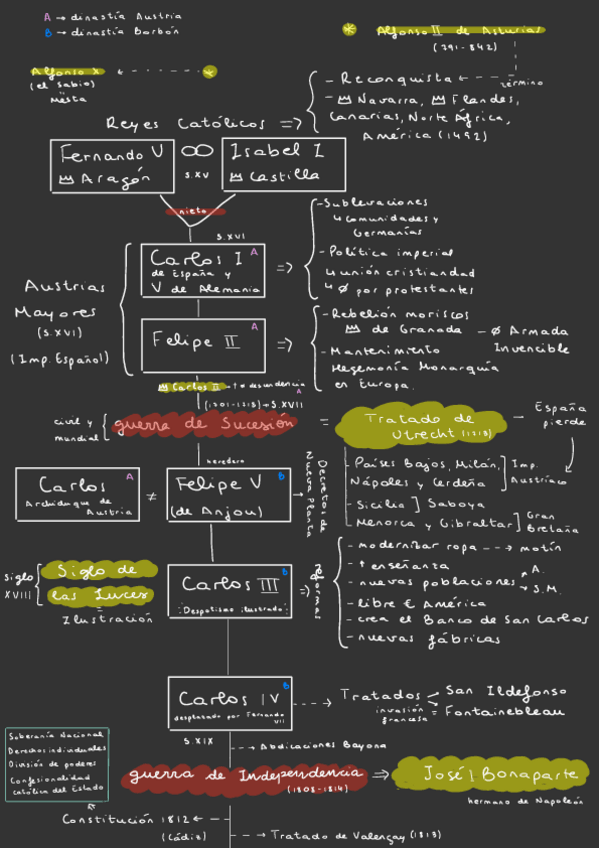 A → dinastía Austria
B → dinastía Borbón
* Alfonso II de Asturias
(791-842)
Alfonso X ← *
(el Sabio)
Mesta
término
- Reconquista
- Navarra, Flandes,
Canarias, Norte África,
América (1492)
Reyes Católicos =>
Fernando V
Aragón
∞
S.XV
Isabel I
Castilla
nieto
S.XVI
Carlos I A
de España y
V de Alemania
=>
- Sublevaciones
↳ Comunidades y
Germanías
- Política imperial
↳ unión cristiandad
↳ Ø por protestantes
Austrias
Mayores
(S.XVI)
(Imp. Español)
Felipe II A
=>
- Rebelión moriscos
de Granada
- Ø Armada
Invencible
- Mantenimiento
Hegemonía Monarquía
en Europa.
Carlos II → † descendencia
A
S.XVII
civil y
mundial
guerra de Sucesión
=
Tratado de
Utrecht (1713)
- España
pierde
heredero
Carlos A
Archiduque de
Austria
≠
Felipe V B
(de Anjou)
Decretos de
Nueva Planta
- Países Bajos, Milán,
Nápoles y Cerdeña
Imp.
Austríaco
- Sicilia ] Saboya
- Menorca y Gibraltar ] Gran
Bretaña
siglo
XVIII
Siglo de
las Luces
=
Ilustración
Carlos III B
¡Despotismo ilustrado!
=>
reformas
- modernizar ropa → motín
- ↑ enseñanza
- nuevas poblaciones
A.
S.M.
- libre € América
- crea el Banco de San Carlos
- nuevas fábricas
Carlos IV B
desplazado por Fernando
VII
Tratados
San Ildefonso
invasión
francesa
= Fontainebleau
S.XIX
→ Abdicaciones Bayona
Soberanía Nacional
Derechos individuales
División de poderes
Confesionalidad
católica del Estado
guerra de Independencia
(1808-1814)
=>
José I Bonaparte
hermano de Napoleón
Constitución 1812 ←
(Cádiz)
→ Tratado de Valençay (1813)